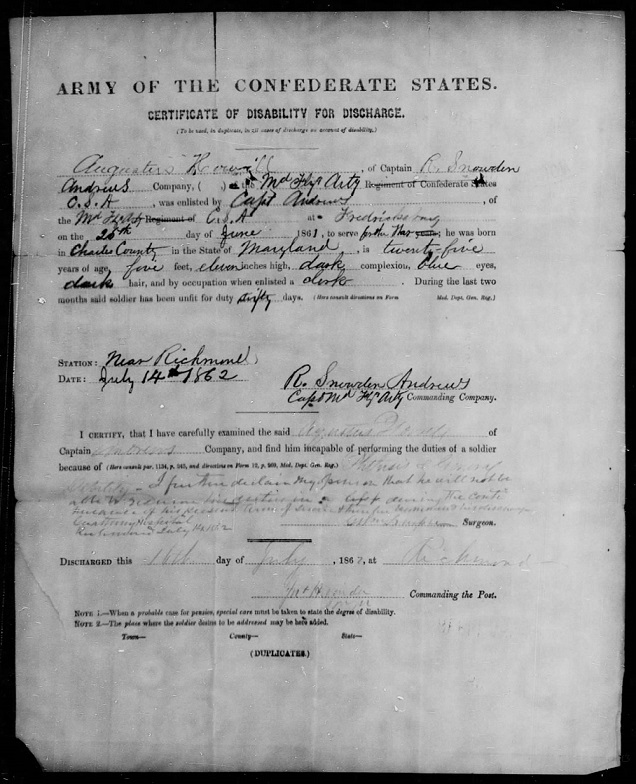 ARMY OF THE CONFEDERATE STATES.
CERTIFICATE OF DISABILITY FOR DISCHARGE.
(To be used, in duplicate, in all cases of discharge on account of disability.)
Augustus , of Captain R. Snowden
Andrews Company, ( ) the Md Flyg Arty Regiment of Confederate States
C.S.A , was enlisted by Capt Andrews , of
the Md Flyg Arty Regiment of C.S.A at Fredricksburg
on the 28th day of June 1861, to serve for the War years; he was born
in Charles County in the State of Maryland , is twenty-five
years of age, five feet, eleven inches high, dark complexion, blue eyes,
dark hair, and by occupation when enlisted a clerk . During the last two
months said soldier has been unfit for duty sixty days. (Here consult directions on Form Med. Dept. Gen. Reg.)
STATION: Near Richmond
DATE: July 14th 1862
R. Snowden Andrews
Capt Md Flyg Arty Commanding Company.
I CERTIFY, that I have carefully examined the said Augustus of
Captain Andrews Company, and find him incapable of performing the duties of a soldier
because of (Here consult par. 1134, p. 243, and directions on Form 12, p. 269, Med. Dept. Gen. Reg.)
debility – I further declare my opinion that he will not be
able to resume his position in
of his present term of service
Hospital
Richmond July 14 1862 Surgeon.
DISCHARGED this 16th day of July , 1862, at Richmond
Commanding the Post.
NOTE 1.—When a probable case for pension, special care must be taken to state the degree of disability.
NOTE 2.—The place where the soldier desires to be addressed may be here added.
Town— County— State—
(DUPLICATES.)